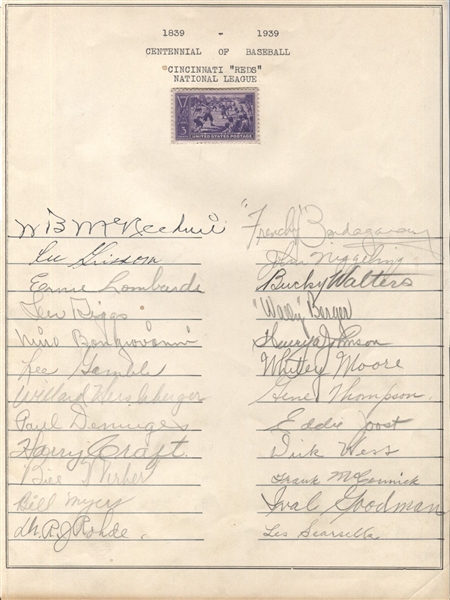 1839 - 1939
CENTENNIAL OF BASEBALL
CINCINNATI "REDS"
NATIONAL LEAGUE
3
UNITED STATES POSTAGE
W B McKechnie
"Frenchy" Bordagaray
Lee Grissom
John Niggeling
Ernie Lombardi
Bucky Walters
Lew Riggs
"Wally" Berger
Nino Bongiovanni
Henry Johnson
Lee Gamble
Whitey Moore
Willard Hershberger
Gene Thompson
Paul Derringer
Eddie Joost
Harry Craft
Dick West
Bill Werber
Frank McCormick
Bill Myers
Ival Goodman
Dr. R. J. Rohde.
Les Scarsella